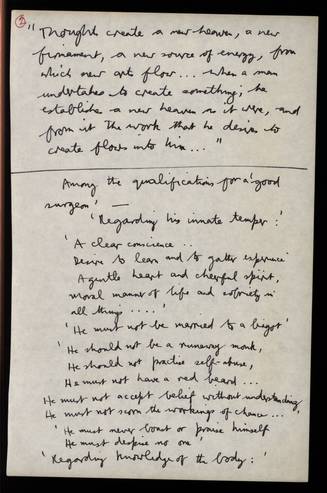 ②
"Thoughts create a new heaven, a new
firmament, a new source of energy, from
which new arts flow... when a man
undertakes to create something, he
establishes a new heaven as it were, and
from it the work that he desires to
create flows into him..."
Among the qualifications for a 'good
surgeon' —
'Regarding his innate temper:'
'A clear conscience..
Desire to learn and to gather experience
A gentle heart and cheerful spirit,
Moral manner of life and sobriety in
all things ....'
'He must not be married to a bigot'
'He should not be a runaway monk,
He should not practise self-abuse,
He must not have a red beard...
He must not accept belief without understanding,
He must not scorn the workings of chance...
'He must never boast or praise himself
He must despise no one'
'Regarding knowledge of the body:'